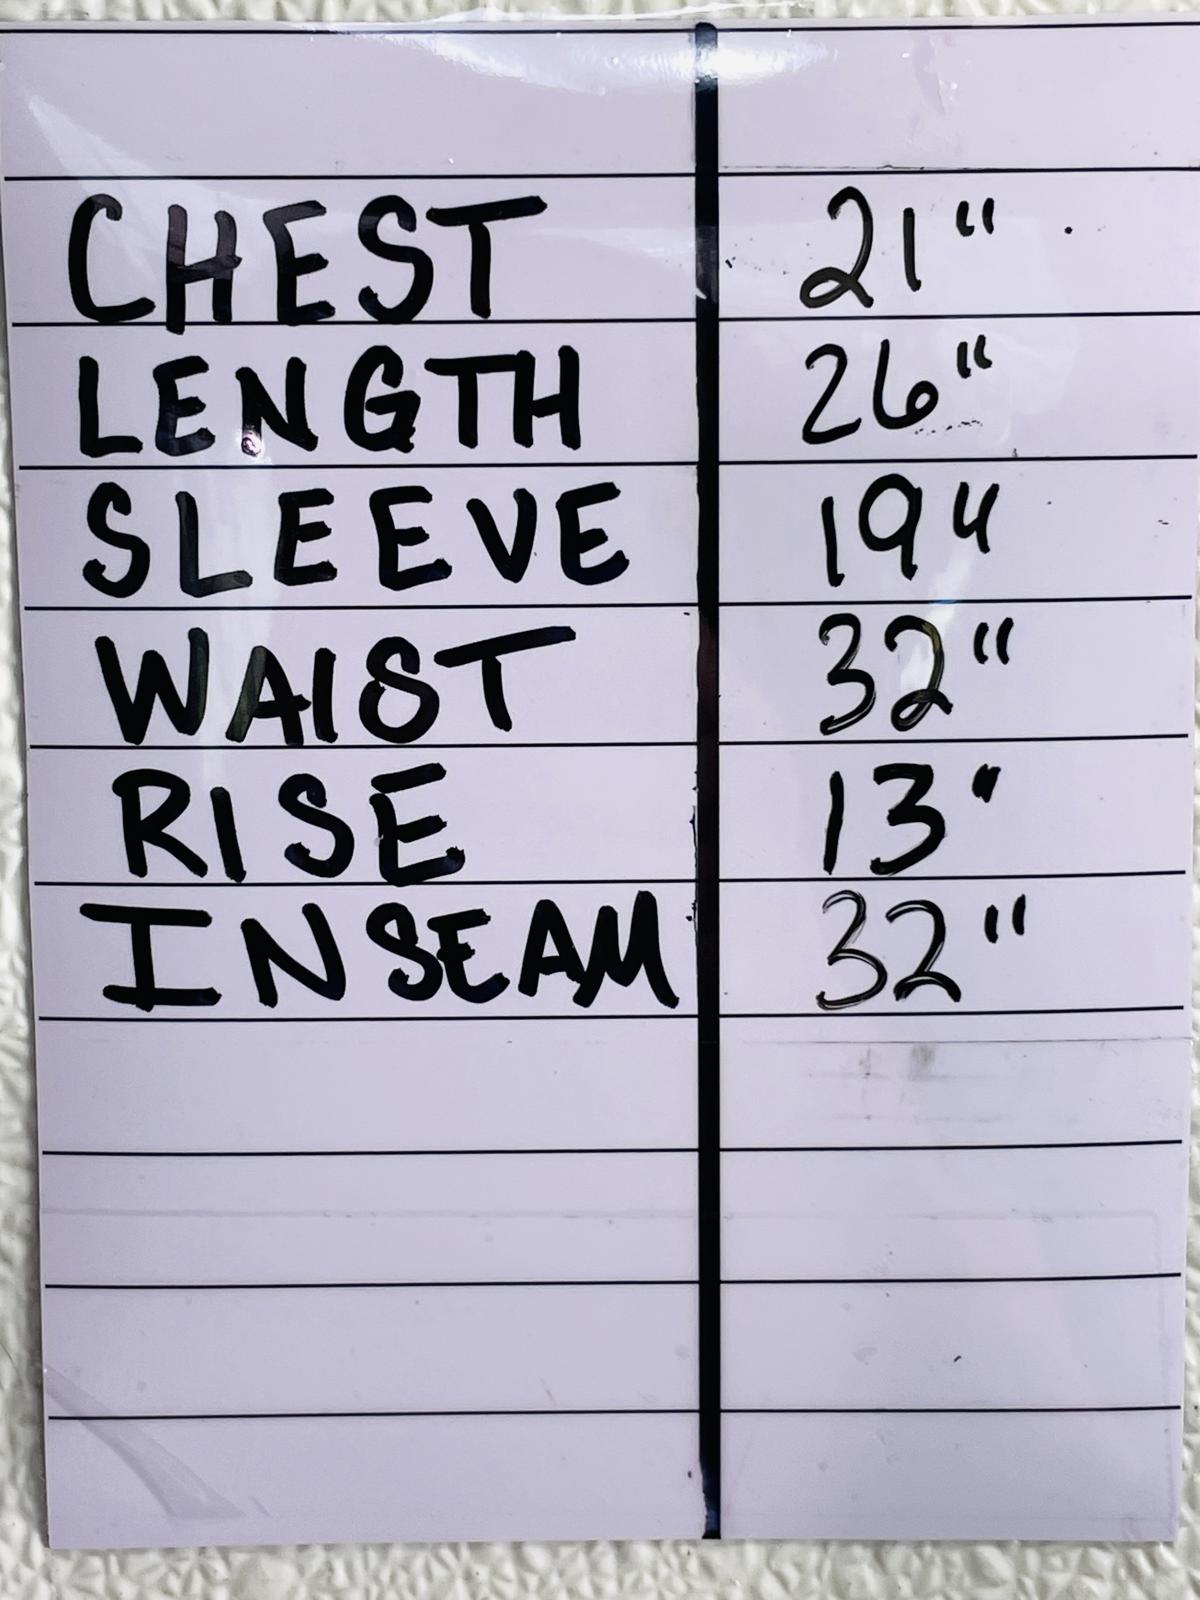 CHEST 21"
LENGTH 26"
SLEEVE 19"
WAIST 32"
RISE 13"
INSEAM 32"